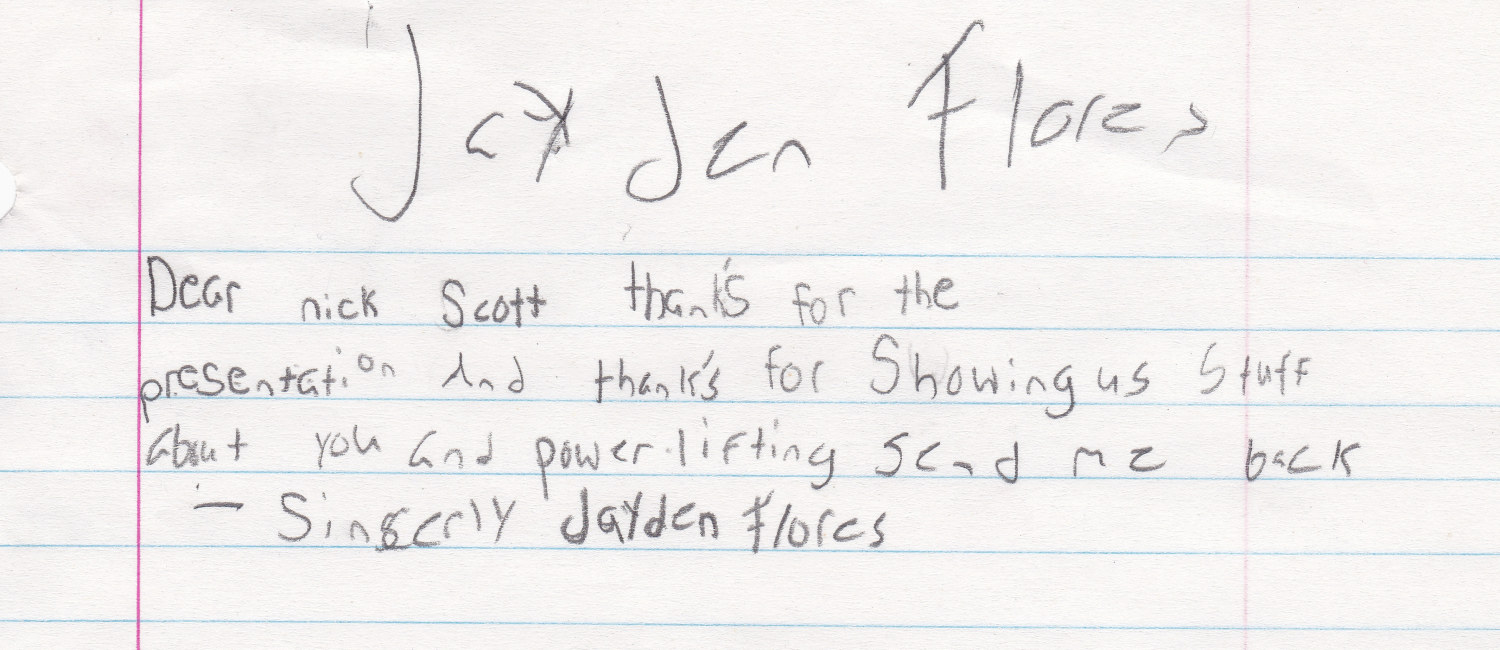 Jayden Flores
Dear nick Scott thank's for the
presentation And thank's for Showing us Stuff
about you and power lifting Send me back
- Singerly Jayden Flores